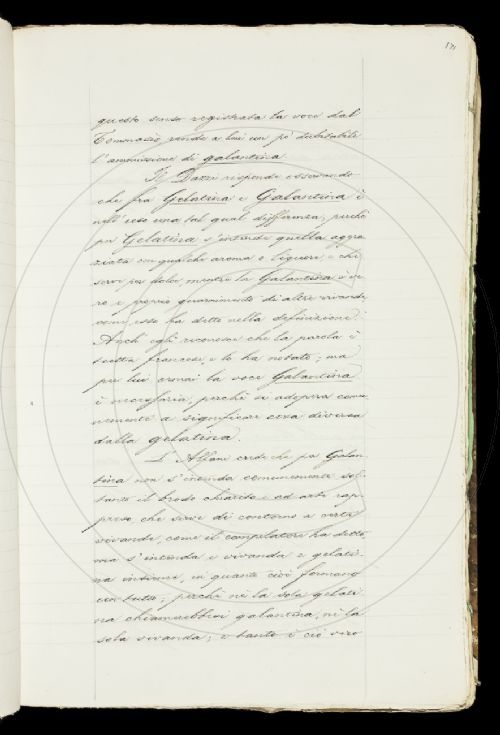 171
questo senso registrata la voce dal
Tommaseo rende a lui un po' dubitabile
l'ammissione di galantina.
Il Dazzi risponde osservando
che fra Gelatina e Galantina è
nell'uso una tal qual differenza; perchè
per Gelatina s'intende quella aggra
ziata con qualche aroma o liquore e che
serve per dolce, mentre la Galantina è ve
ro e proprio guarnimento di altre vivande
come esso ha detto nella definizione.
Anch'egli riconosce che la parola è
tutta francese, e lo ha notato; ma
per lui ormai la voce Galantina
è necessaria, perchè si adopera comu
nemente a significare cosa diversa
dalla gelatina.
L'Alfani crede che per Galan-
tina non s'intenda comunemente sol-
tanto il brodo chiarito e ad arte rap-
preso che serve di contorno a certe
vivande, come il compilatore ha detto,
ma s'intenda e vivanda e gelati-
na insieme, in quanto cioè formano
un tutto; perchè nè la sola gelati-
na chiamerebbesi galantina, nè la
sola vivanda; e tanto è ciò vero